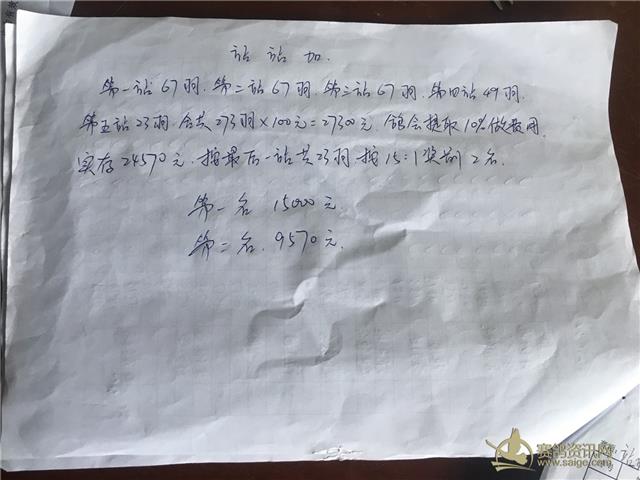 站站加.
第一站67羽.第二站67羽.第三站67羽.第四站49羽.
第五站23羽.合共273羽×100元=27300元.鸽会提取10%做费用.
实存24570元.按最后一站共23羽按15:1奖励2名.
第一名 15000元.
第二名.9570元.
赛鸽资讯网
www.saige.com